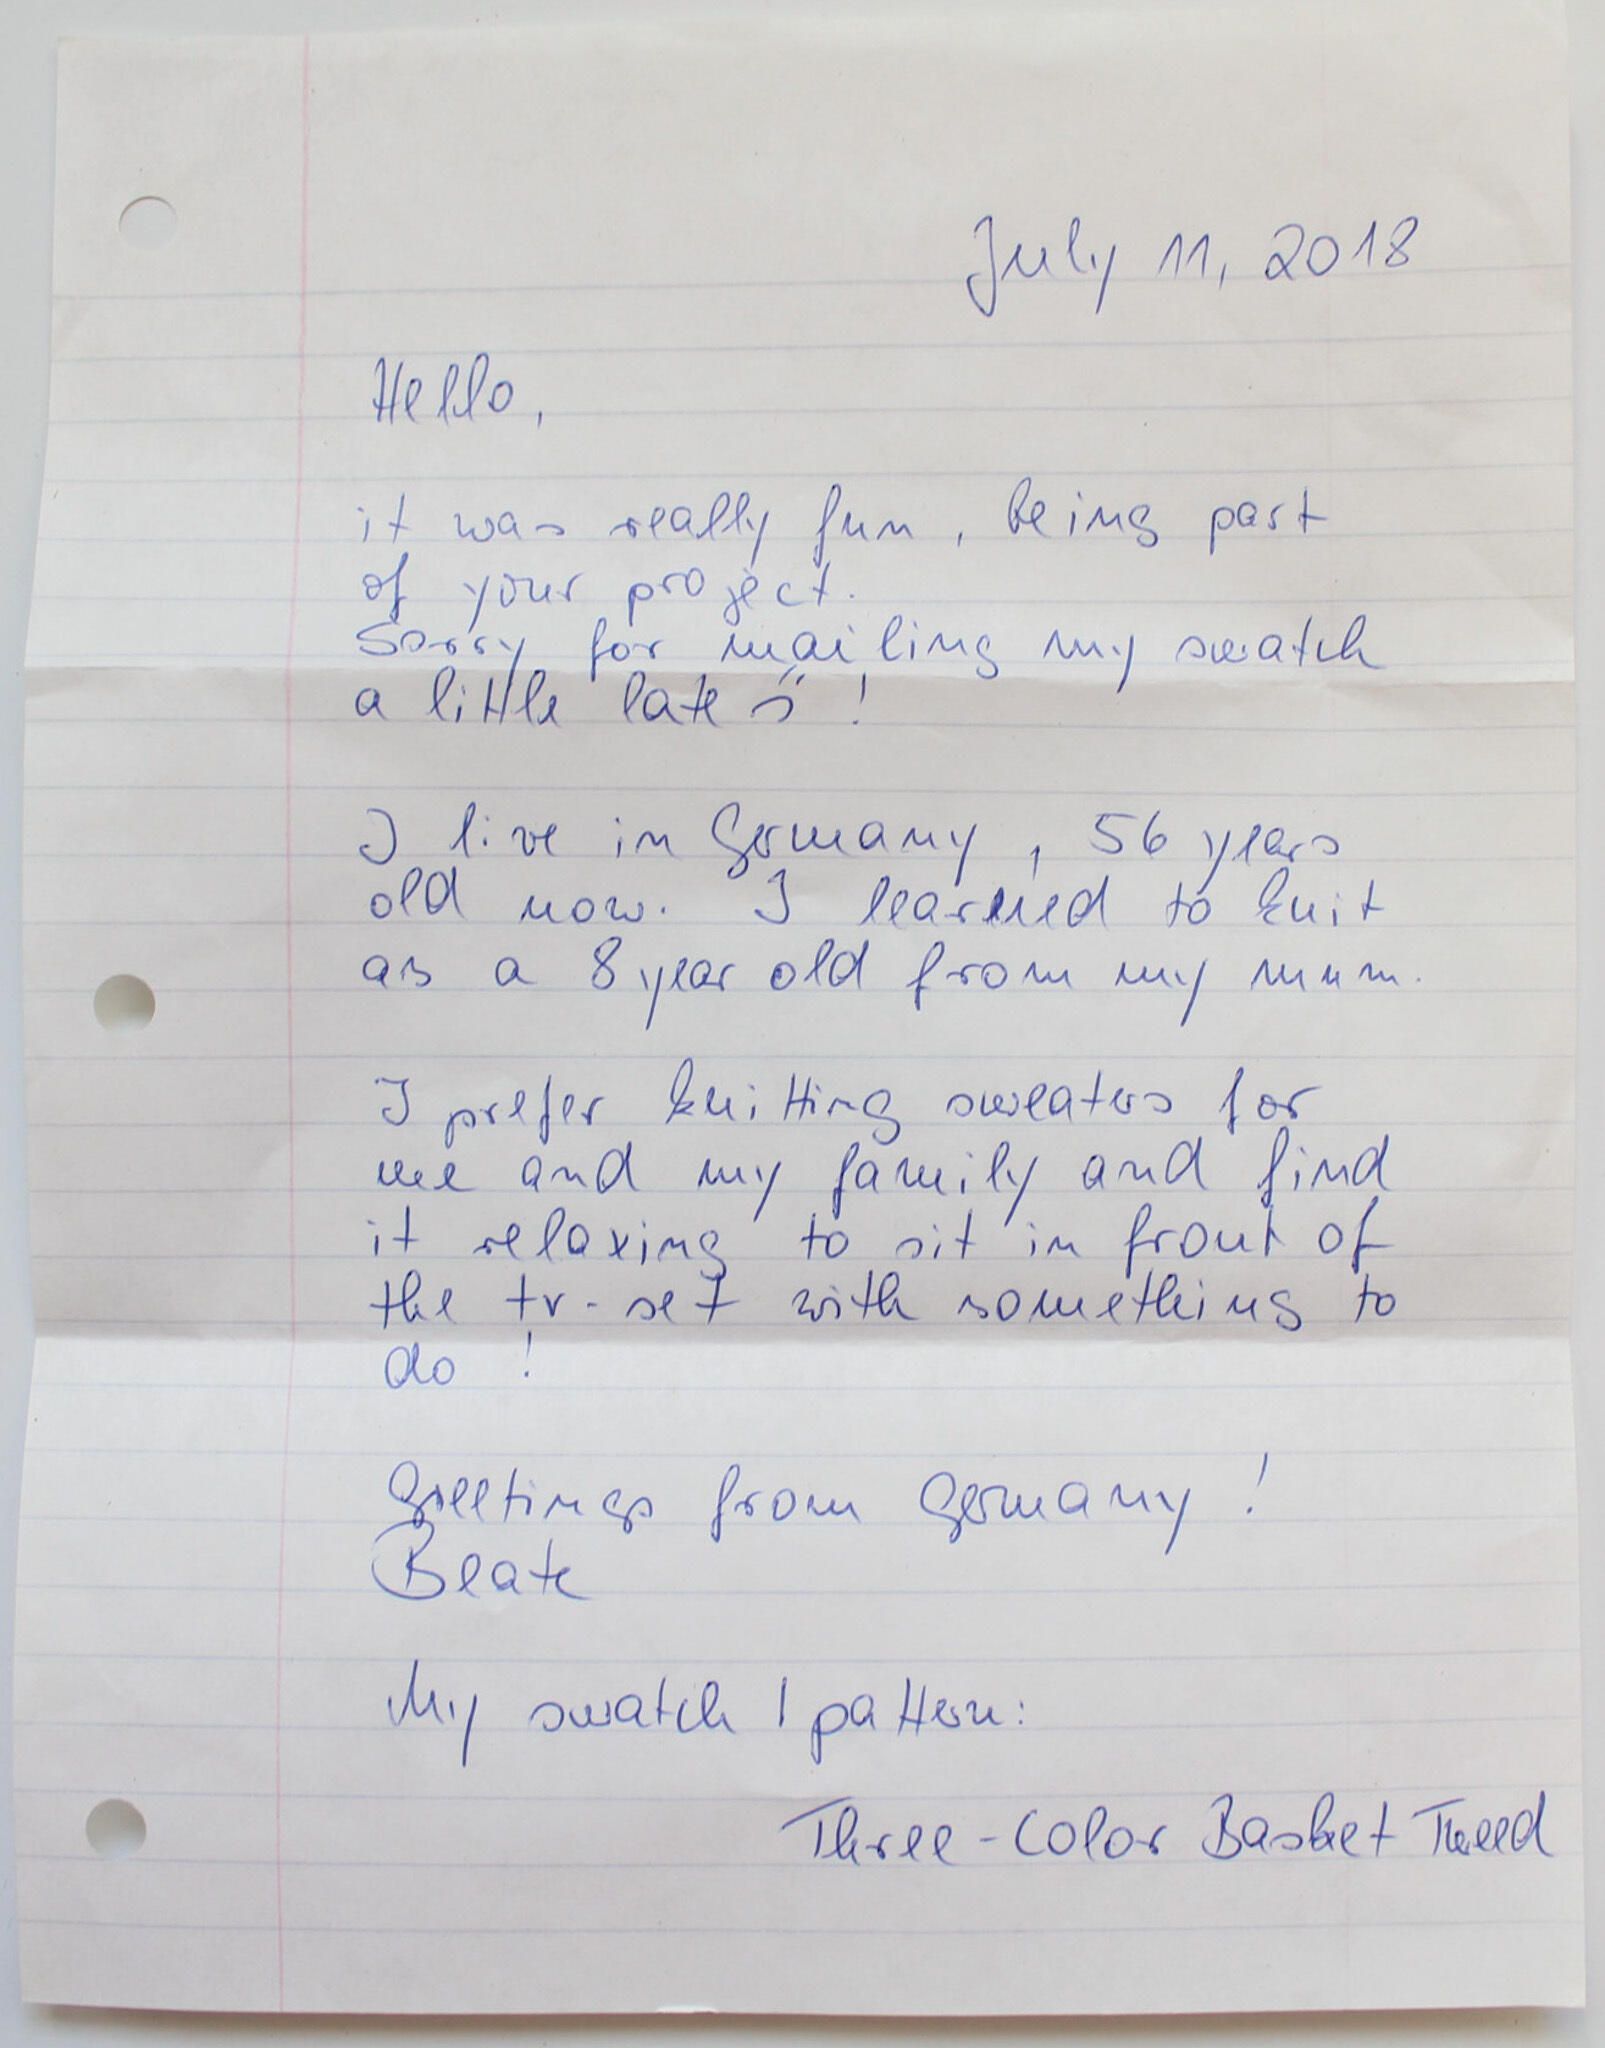 July 11, 2018
Hello,
it was really fun, being part
of your project.
Sorry for mailing my swatch
a little late !
I live in Germany, 56 years
old now. I learned to knit
as a 8 year old from my mum.
I prefer knitting sweaters for
me and my family and find
it relaxing to sit in front of
the tv-set with something to
do !
Greetings from Germany !
Beate
My swatch / pattern:
Three-Color Basket Tweed